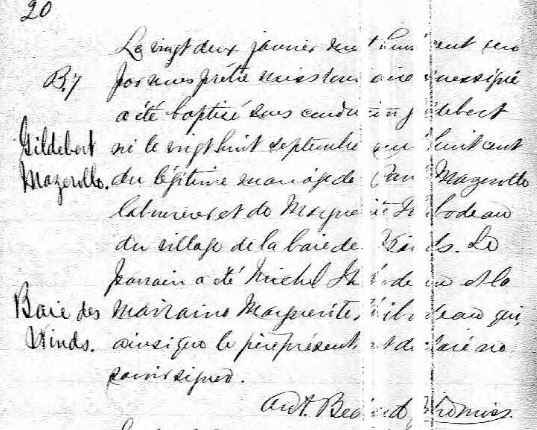 20
B.7
Gildebert
Mazerolle.
Baie des
Winds.
Le vingt deux janvier mil huit cent
par nous prêtre missionnaire soussigné
a été baptisé sous condition Gildebert
né le vingt huit septembre mil huit cent
du légitime mariage de Mazerolle
laboureur et de Marguerite Thibodeau
du village de la baie des Winds. Le
parrain a été Michel Thibodeau et la
marraine Marguerite Thibodeau qui,
ainsi que le père présent ont déclaré ne
savoir signer.
Ant.